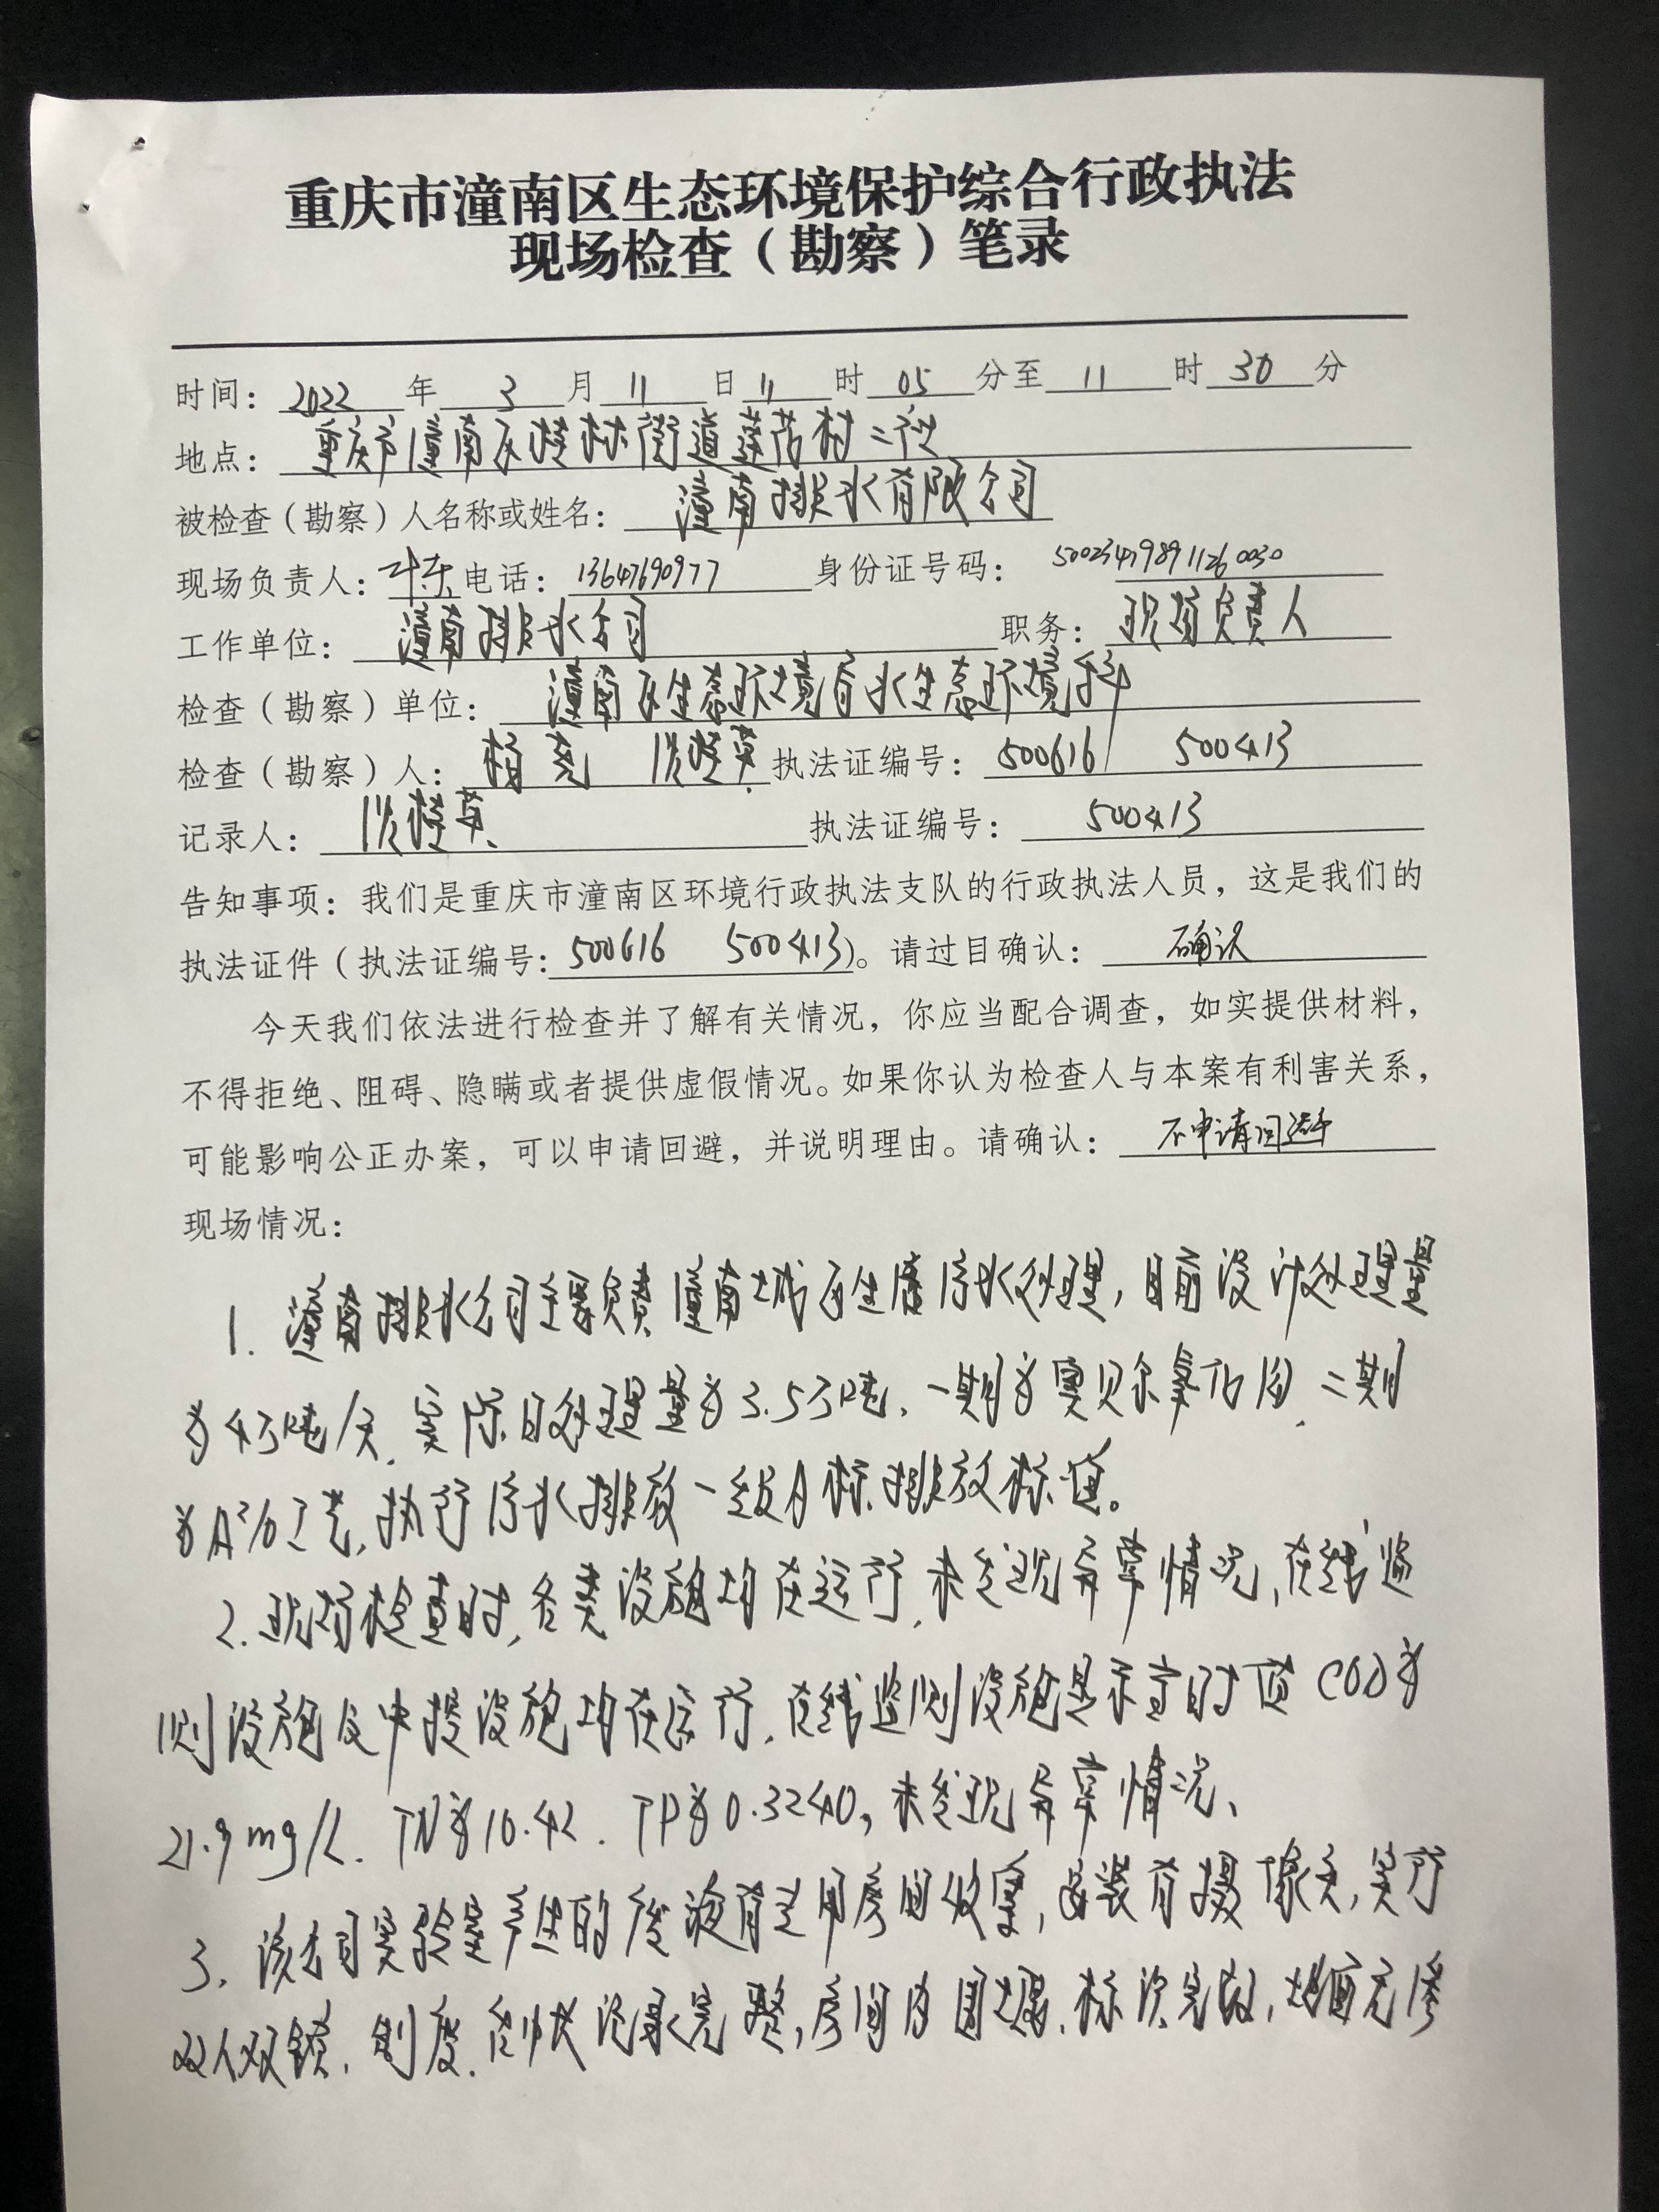 重庆市潼南区生态环境保护综合行政执法
现场检查（勘察）笔录
时间：2022年3月11日11时05分至11时30分
地点：重庆市潼南区桂林街道莲花村二社
被检查（勘察）人名称或姓名：潼南排水有限公司
现场负责人：电话：13647690977 身份证号码：
工作单位：潼南排水公司 职务：现场负责人
检查（勘察）单位：潼南区生态环境局水生态环境科
检查（勘察）人：执法证编号：500616 500413
记录人：执法证编号：500413
告知事项：我们是重庆市潼南区环境行政执法支队的行政执法人员，这是我们的
执法证件（执法证编号：500616 500413）。请过目确认：确认
今天我们依法进行检查并了解有关情况，你应当配合调查，如实提供材料，
不得拒绝、阻碍、隐瞒或者提供虚假情况。如果你认为检查人与本案有利害关系，
可能影响公正办案，可以申请回避，并说明理由。请确认：不申请回避
现场情况：
1. 潼南排水公司主要负责潼南城区生活污水处理，目前设计处理量
为4万吨/天，实际日处理量为3.5万吨，一期为奥贝尔氧化沟，二期
为A²/O工艺，执行污水排放一级A标排放标准。
2. 现场检查时，各类设施均在运行，未发现异常情况，在线监
测设施及中控设施均在运行，在线监测设施显示实时值COD为
21.9mg/L，TN为10.42，TP为0.3240，未发现异常情况、
3. 该公司实验室产生的废液有专用房间收集，安装有摄像头，实行
双人双锁，制度、台帐记录完整，房间内围堰、标识完好，地面无渗